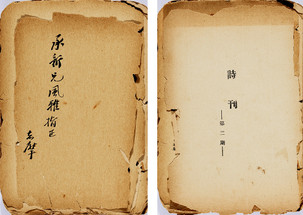 承新兄風雅指正
志摩
詩刊
第二期